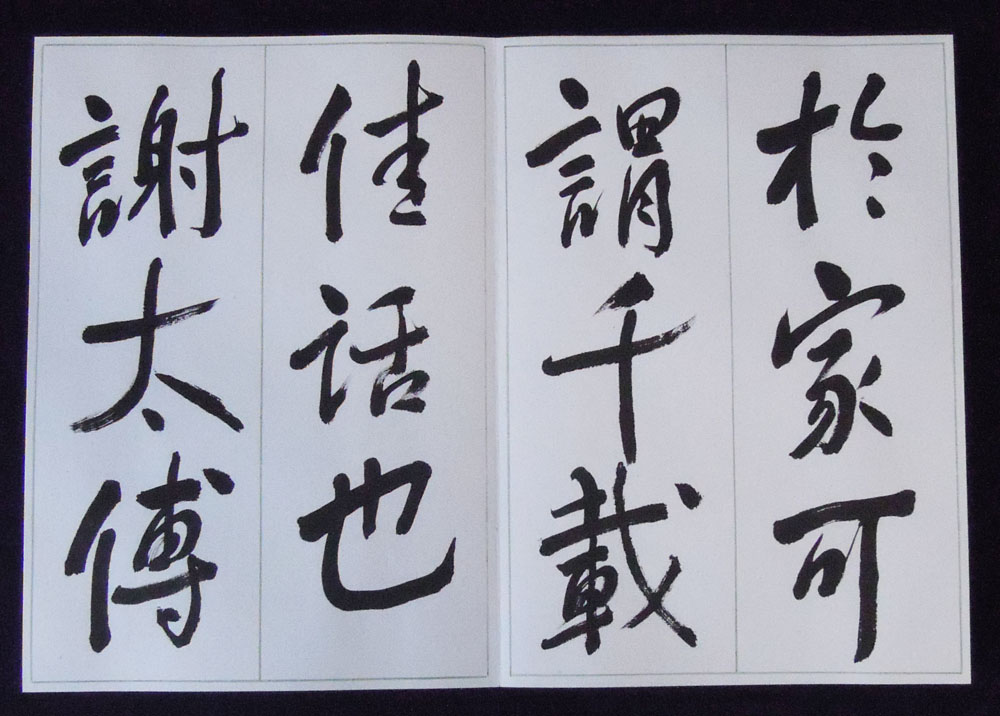 於家可
謂千載
佳話也
謝太傅